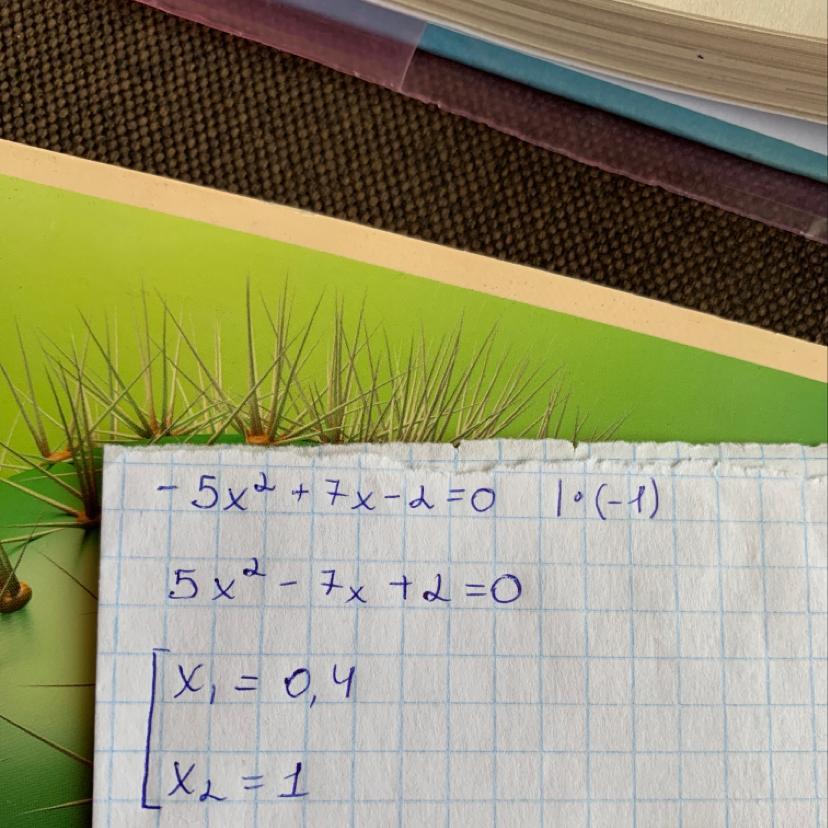 - 5x² + 7x - 2 = 0 | • (-1)
5x² - 7x + 2 = 0
[ x₁ = 0,4
x₂ = 1